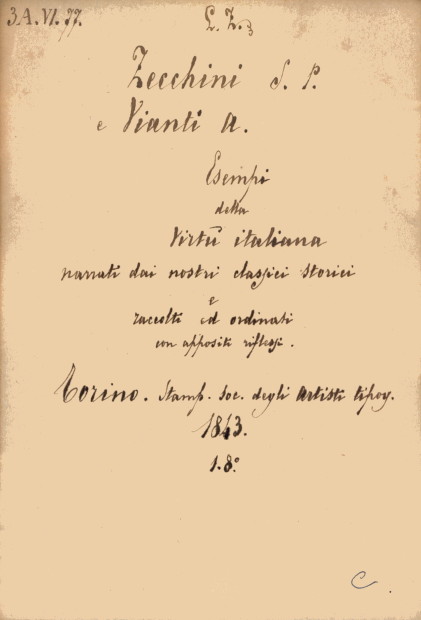 3.A.VI.77.
L. Z.
Zecchini S. P.
e Vianti A.
Esempi
della
Virtù italiana
narrati dai nostri classici storici
e
raccolti ed ordinati
con appositi riflessi.
Torino. Stamp. soc. degli artisti tipog.
1843.
1. 8.°
C